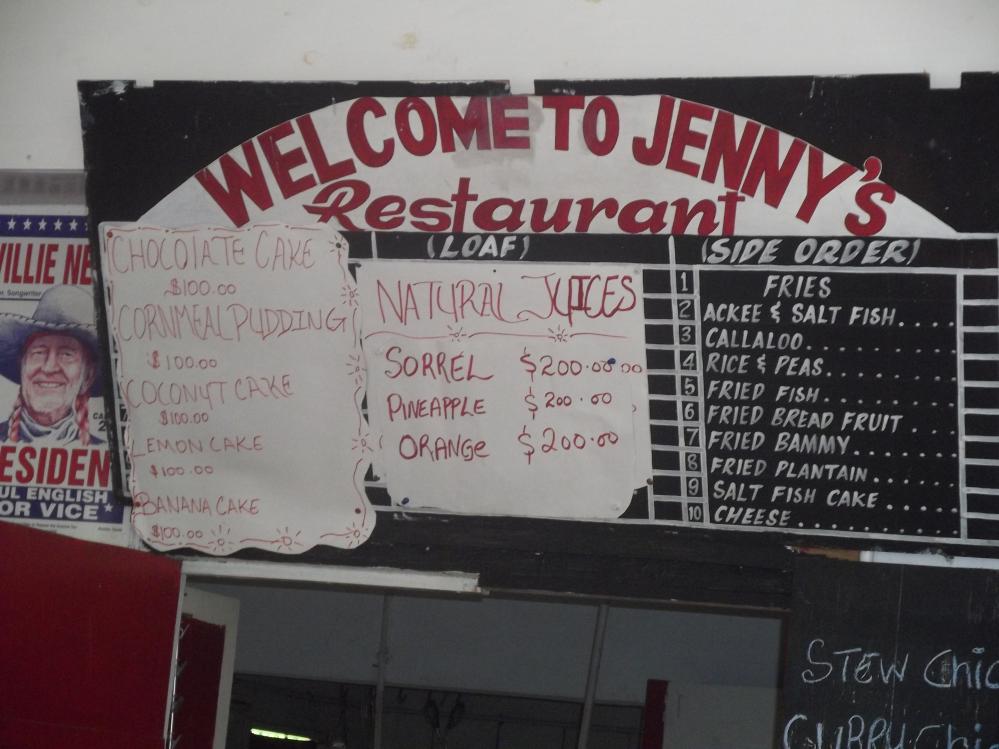 WELCOME TO JENNY'S
Restaurant
CHOCOLATE CAKE
$100.00
CORNMEAL PUDDING
$100.00
COCONUT CAKE
$100.00
LEMON CAKE
$100.00
BANANA CAKE
$100.00
(LOAF)
NATURAL JUICES
SORREL $200.00 00
PINEAPPLE $200.00
ORANGE $200.00
(SIDE ORDER)
1 FRIES
2 ACKEE & SALT FISH.....
3 CALLALOO...........
4 RICE & PEAS..........
5 FRIED FISH..........
6 FRIED BREAD FRUIT...
7 FRIED BAMMY.......
8 FRIED PLANTAIN......
9 SALT FISH CAKE.....
10 CHEESE............
VILLIE NE
ESIDEN
UL ENGLISH
OR VICE
STEW Chic
CURRY Chi